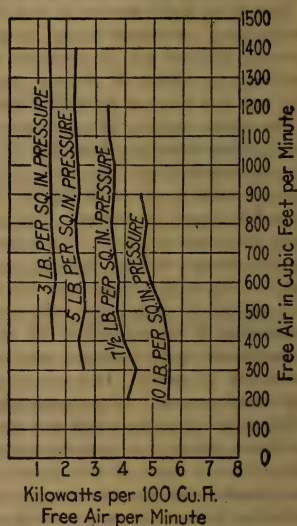 1500
1400
1300
1200
1100
1000
900
800
700
600
500
400
300
200
100
0
Free Air in Cubic Feet per Minute
3 LB. PER SQ. IN. PRESSURE
5 LB. PER SQ. IN. PRESSURE
7½ LB. PER SQ. IN. PRESSURE
10 LB. PER SQ. IN. PRESSURE
1 2 3 4 5 6 7 8
Kilowatts per 100 Cu. Ft.
Free Air per Minute